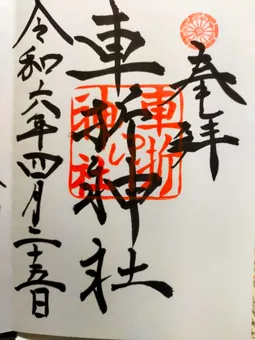 奉拝
車折神社
車折神社
令和六年四月二十五日